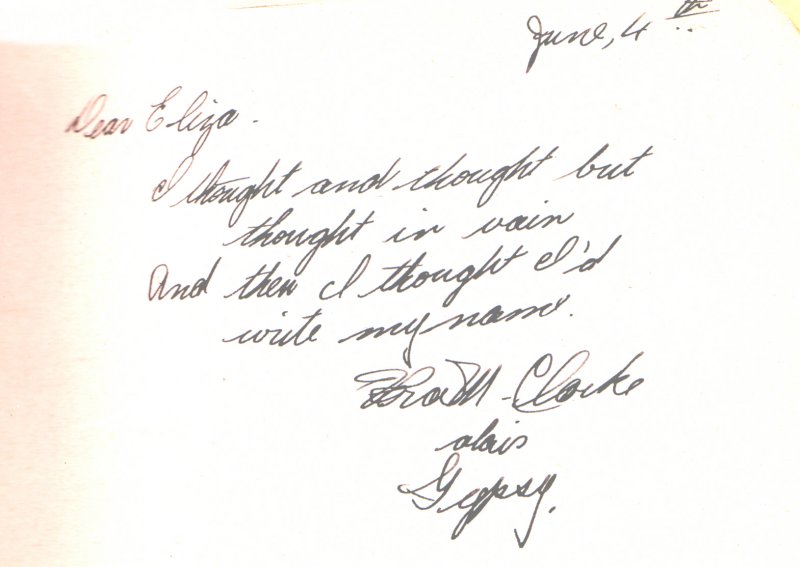 June, 4th
Dear Eliza.
I thought and thought but
thought in vain
And then I thought I'd
write my name.
M. Clarke
alais
Gypsy.